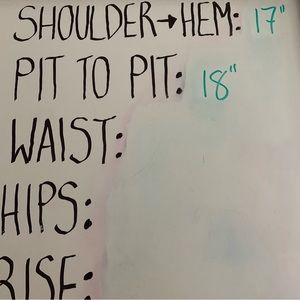 SHOULDER→HEM: 17"
PIT TO PIT: 18"
WAIST:
HIPS:
RISE: